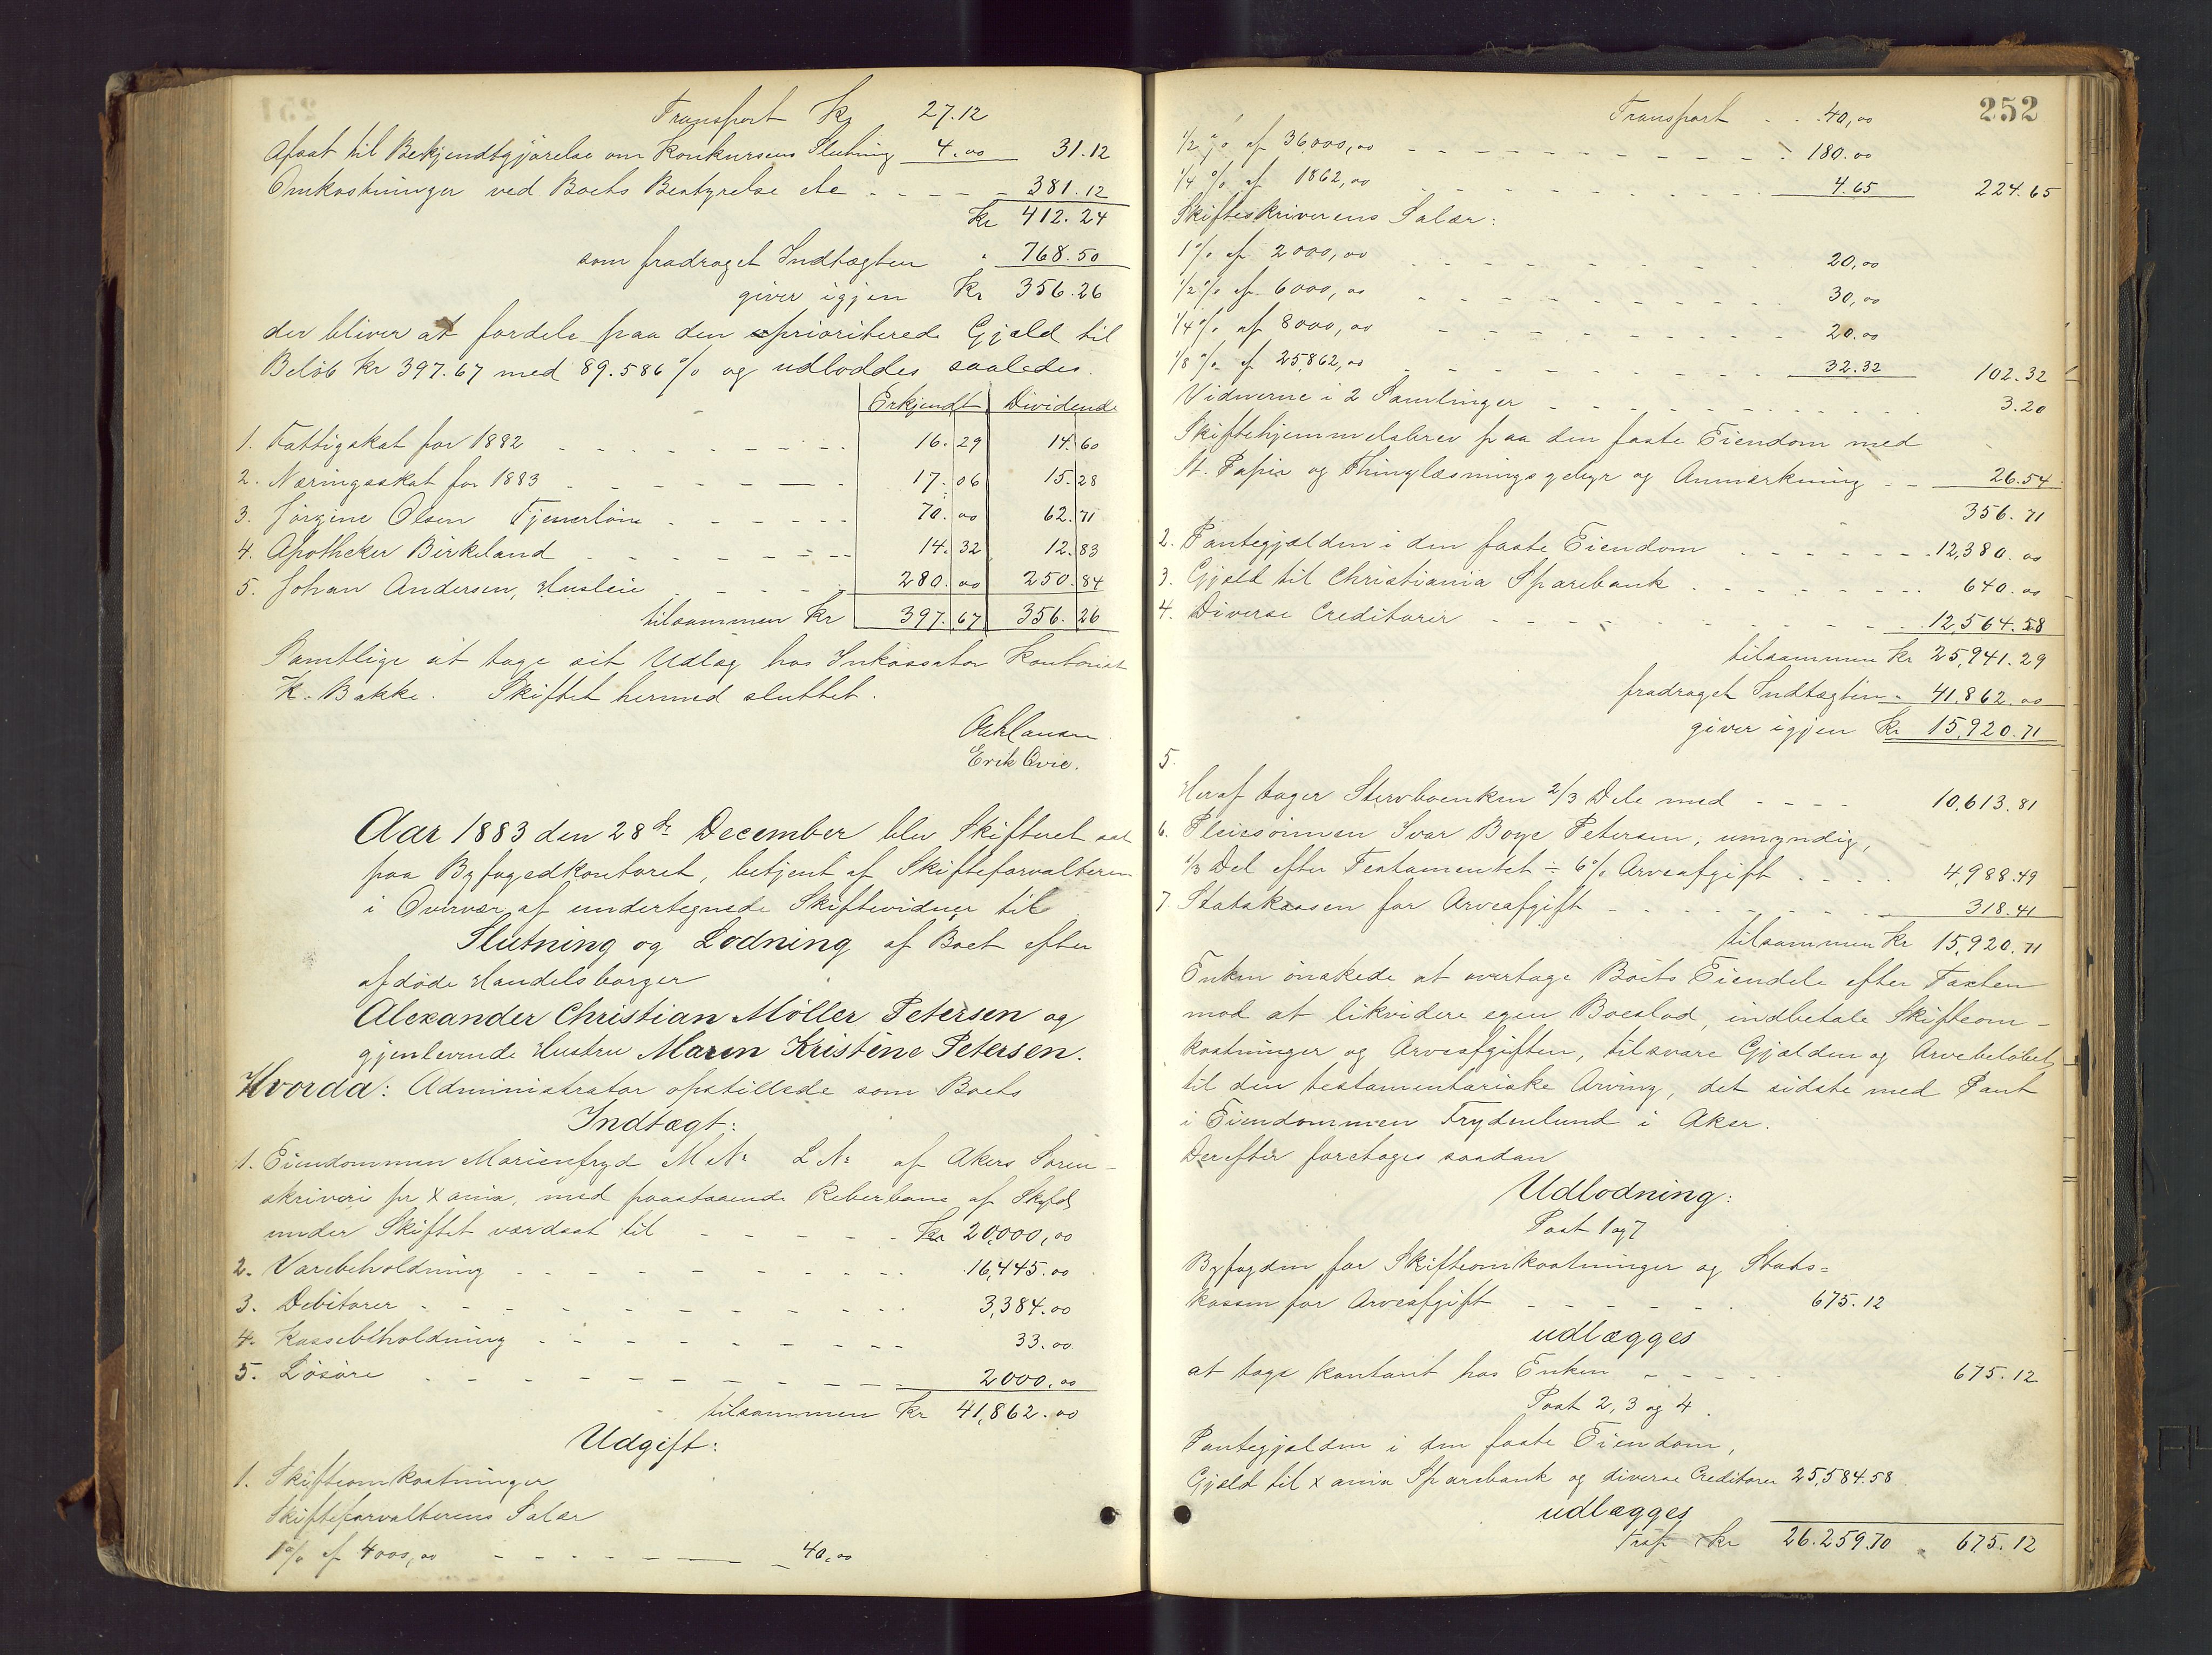 Transport Kr 27.12
Afsat til Bekjendtgjørelse om Konkursens Slutning 4.00 31.12
Omkostninger ved Boets Bestyrelse etc - - - - 381.12
Kr 412.24
som fradraget Indtægten " 768.50
giver igjen Kr 356.26
der bliver at fordele paa den uprioriterede Gjæld til
Beløb Kr 397.67 med 89.586 % og udloddes saaledes.
Erkjendt Dividende
1. Fattigskat for 1882 - - - 16.29 14.60
2. Næringsskat for 1883 - - - 17.06 15.28
3. Jørgine Olsen Tjenerløn - - - 70.00 62.71
4. Apotheker Birkeland - - - 14.32 12.83
5. Johan Andersen, Husleie - - - 280.00 250.84
tilsammen Kr 397.67 356.26
Samtlige at tage sit Udlæg hos Inkassator Kontorist
K. Bakke. Skiftet hermed sluttet.
Erik Qvie.
Aar 1883 den 28de December blev Skifteret sat
paa Byfogedkontoret, betjent af Skifteforvalteren
i Overvær af undertegnede Skiftevidner til
Slutning og Lodning af Boet efter
afdøde Handelsborger
Alexander Christian Møller Petersen og
gjenlevende Hustru Maren Kristine Petersen.
Hvorda: Administrator opstillede som Boets
Indtægt:
1. Eiendommen Marienfryd M No L No af Akers Soren-
skriveri pr Xania, med paastaaende Reberbane af Skyld
under Skiftet værdsat til - - - Kr 20,000,00
2. Varebeholdning - - - 16,445.00
3. Debitorer - - - 3,384.00
4. Kassebeholdning - - - 33.00
5. Løsøre - - - 2000.00
tilsammen Kr 41,862.00
Udgift:
1. Skifteomkostninger
Skifteforvalterens Salær
1 % af 4000,00 - - - 40,00
252
Transport - - 40,00
1/2 % af 36000,00 - - - 180.00
1/4 % af 1862,00 - - - 4.65 224.65
Skifteskriverens Salær:
1 % af 2000,00 - - - 20,00
1/2 % af 6000,00 - - - 30,00
1/4 % af 8000,00 - - - 20.00
1/8 % af 25862,00 - - - 32.32 102.32
Vidnerne i 2 Samlinger - - - 3.20
Skiftehjemmelsbrev paa den faste Eiendom med
St. Papir og Thinglæsningsgebyr og Anmærkning - - 26.54
356.71
2. Pantegjælden i den faste Eiendom - - - 12,380.00
3. Gjæld til Christiania Sparebank - - - 640.00
4. Diverse Creditorer - - - 12,564.58
tilsammen Kr 25,941.29
fradraget Indtægten - 41,862.00
giver igjen Kr 15,920.71
5.
Heraf tager Stervboenken 2/3 Dele med - - - 10,613.81
6. Pleiesønnen Ivar Boye Petersen, umyndig,
1/3 Del efter Testamentet ÷ 6 % Arveafgift - - - 4,988.49
7. Statskassen for Arveafgift - - - 318.41
tilsammen Kr 15,920.71
Enken ønskede at overtage Boets Eiendele efter Taxten
mod at likvidere egen Boeslod, indbetale Skifteom-
kostninger og Arveafgiften, tilsvare Gjælden og Arvebeløbet
til den testamentariske Arving, det sidste med Pant
i Eiendommen Frydenlund i Aker.
Derefter foretoges saadan
Udlodning:
Post 1 og 7
Byfogden for Skifteomkostninger og Stats-
kassen for Arveafgift - - - 675.12
udlægges
at tage kontant hos Enken - - - 675.12
Post 2, 3 og 4.
Pantegjælden i den faste Eiendom,
Gjæld til Xania Sparebank og diverse Creditorer 25,584.58
udlægges
Trsp Kr 26.259.70 " 675.12